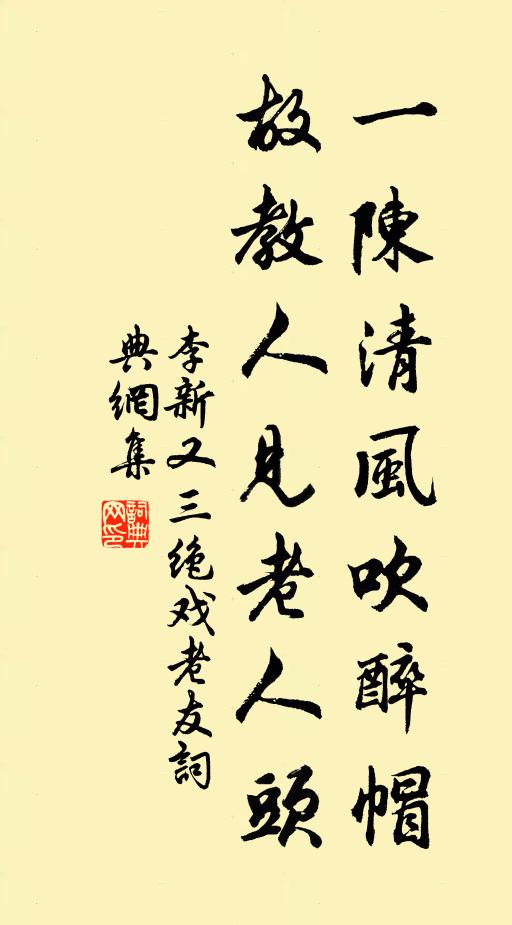 一陳清風吹醉帽
故教人見老人頭
李新又三绝戏老友詞
典網集
詞典网印